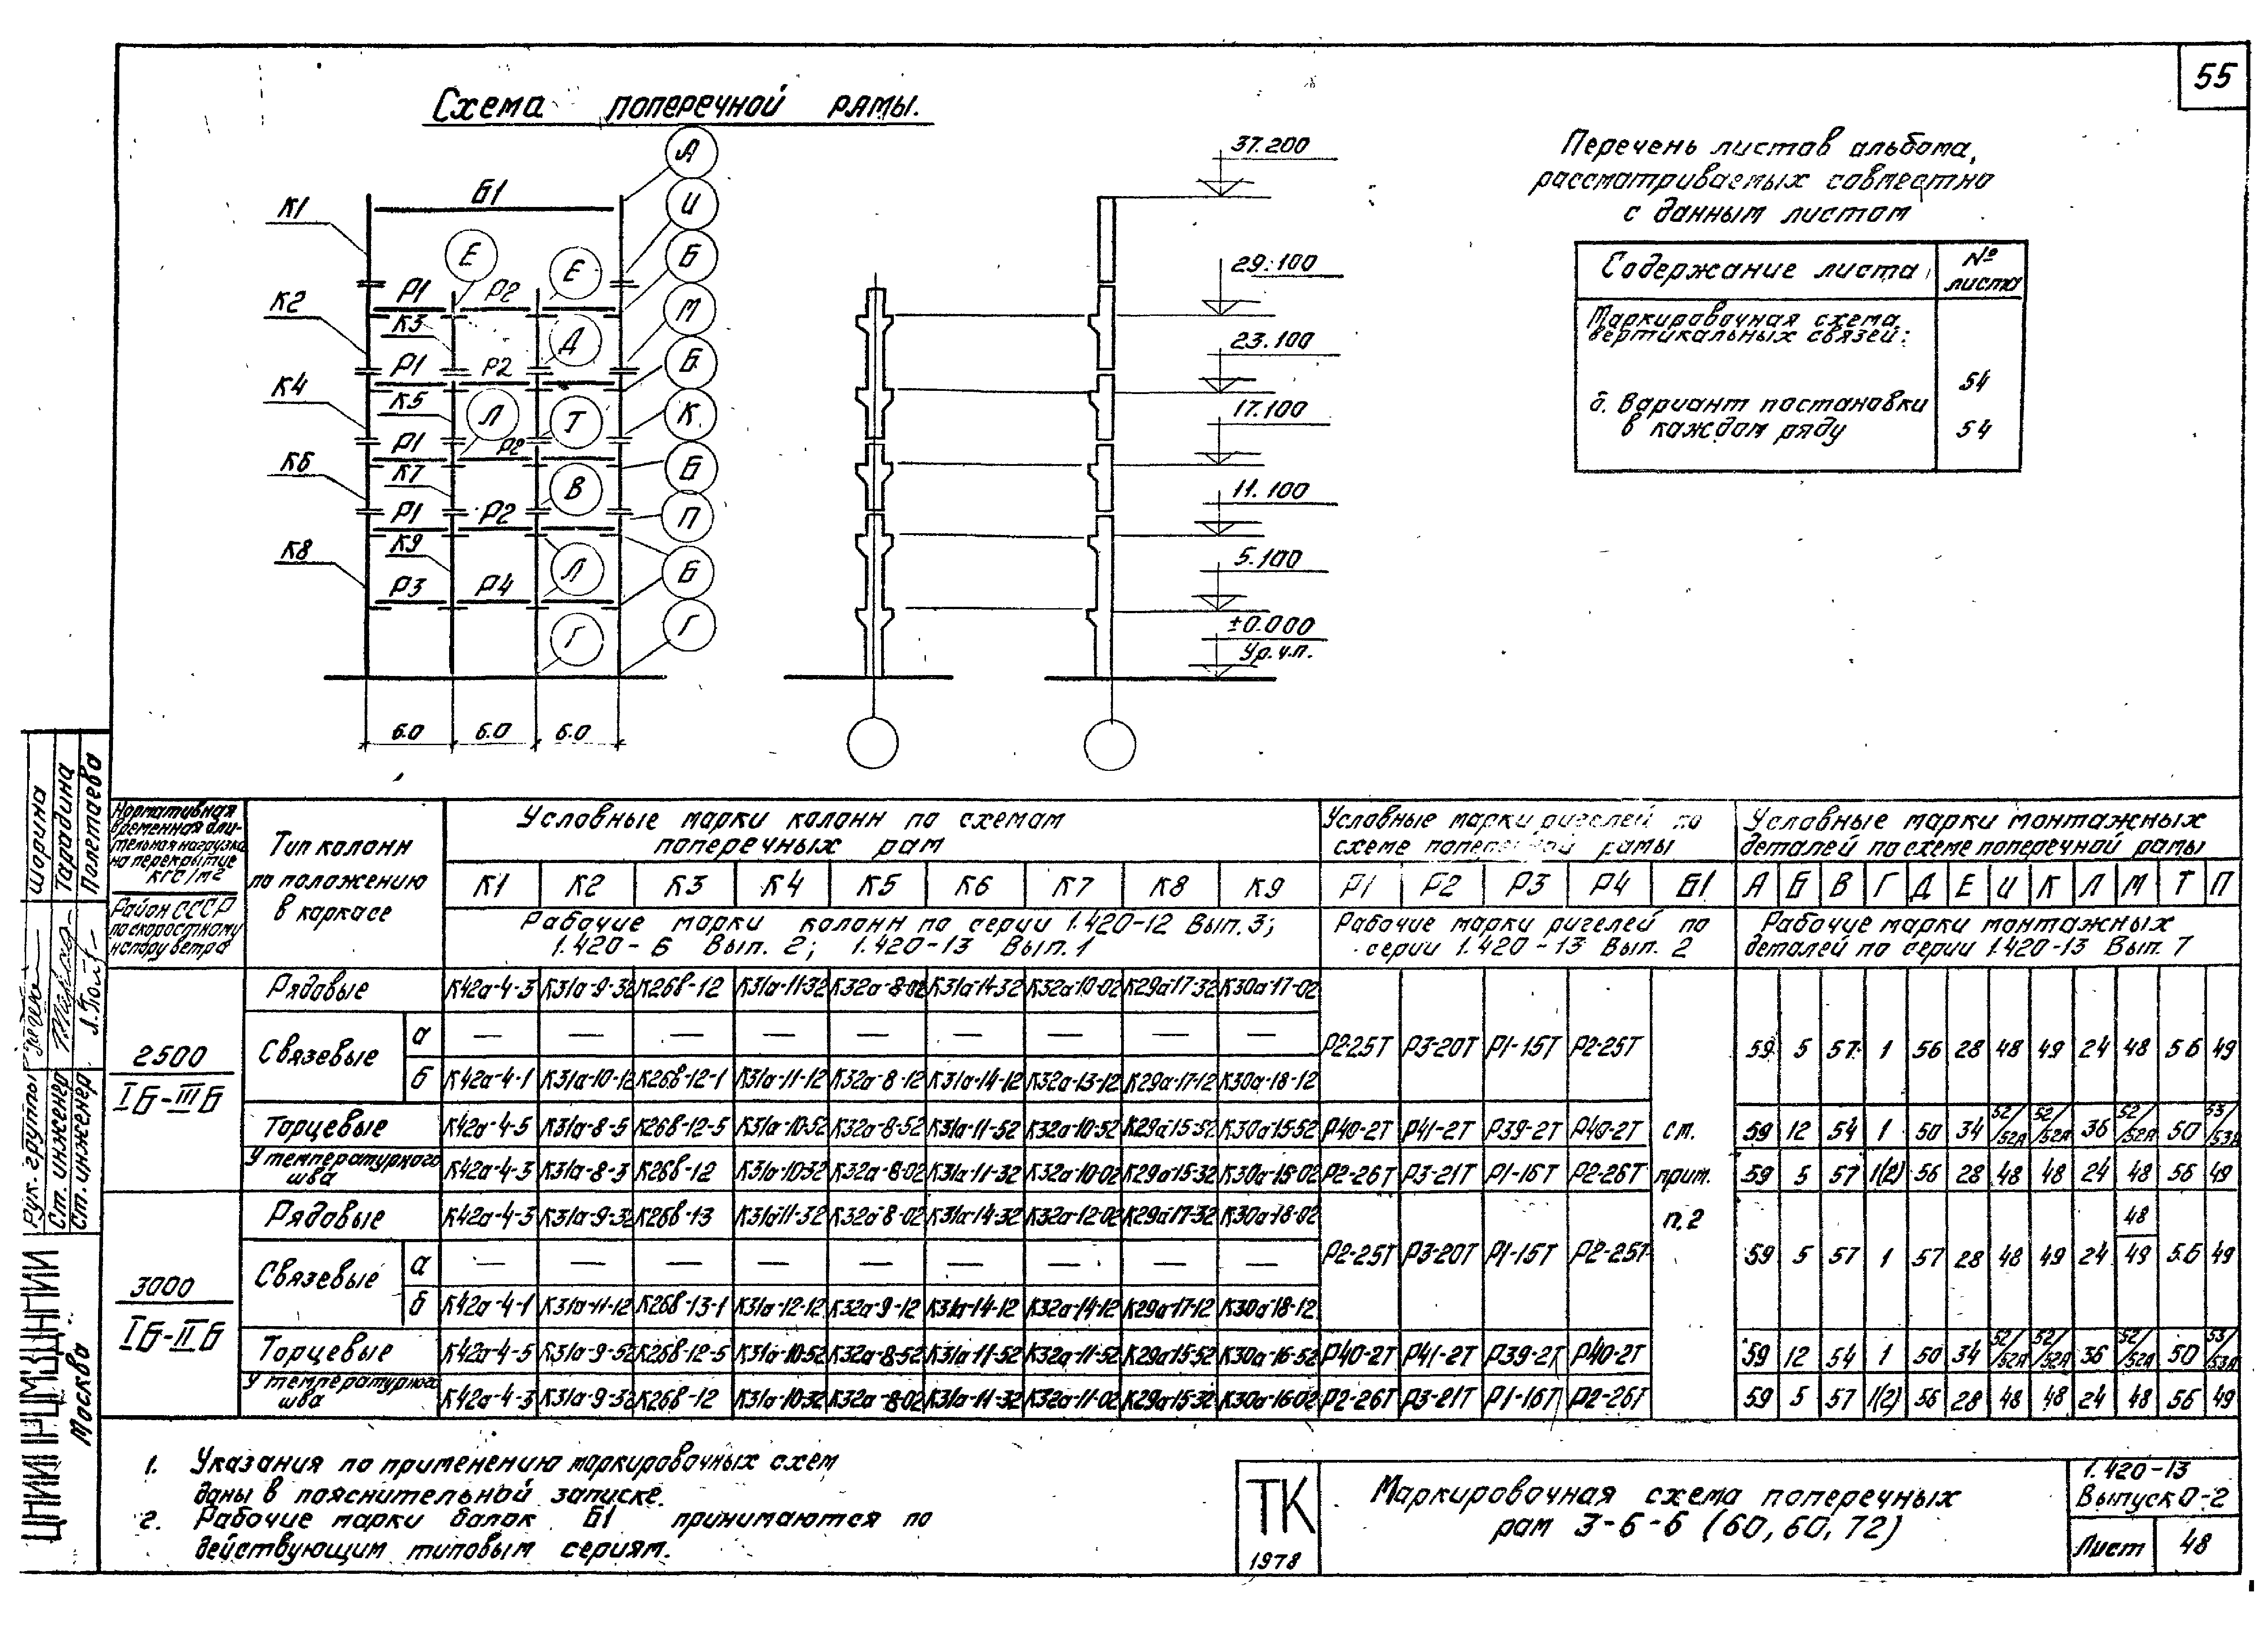 55
Схема поперечной рамы.
А
Б1
И
К1
Е
Е
Б
Р1
Р2
К2
К3
М
Д
Р1
Р2
Б
К4
К5
Л
Т
К
Р1
Р2
К6
К7
Б
В
Р1
Р2
П
К8
К9
Л
Б
Р3
Р4
Г
Г
6.0
6.0
6.0
37.200
29.100
23.100
17.100
11.100
5.100
±0.000
Ур.ч.п.
Перечень листов альбома,
рассматриваемых совместно
с данным листом
Содержание листа
№
листа
Маркировочная схема
вертикальных связей:
54
б. Вариант постановки
в каждом ряду
54
Нормативная
временная дли-
тельная нагрузка
на перекрытие
кгс/м2
Район СССР
по скоростному
напору ветра
Тип колонн
по положению
в каркасе
Условные марки колонн по схемам
поперечных рам
К1 К2 К3 К4 К5 К6 К7 К8 К9
Рабочие марки колонн по серии 1.420-12 Вып.3;
1.420-6 Вып. 2; 1.420-13 Вып.1
Условные марки ригелей по
схеме поперечной рамы
Р1 Р2 Р3 Р4 Б1
Рабочие марки ригелей по
серии 1.420-13 Вып. 2
Условные марки монтажных
деталей по схеме поперечной рамы
А Б В Г Д Е И К Л М Т П
Рабочие марки монтажных
деталей по серии 1.420-13 Вып. 7
2500
IБ-IIIБ
Рядовые К42а-4-3 К31а-9-32 К26в-12 К31а-11-32 К32а-8-02 К31а-14-32 К32а-10-02 К29а-17-32 К30а-17-02
Связевые
а — — — — — — — — —
Р2-25Т Р3-20Т Р1-15Т Р2-25Т
59 5 57 1 56 28 48 49 24 48 56 49
б К42а-4-1 К31а-10-12 К26в-12-1 К31а-11-12 К32а-8-12 К31а-14-12 К32а-13-12 К29а-17-12 К30а-18-12
Торцевые К42а-4-5 К31а-8-5 К26в-12-5 К31а-10-52 К32а-8-52 К31а-11-52 К32а-10-52 К29а-15-52 К30а-15-52 Р40-2Т Р41-2Т Р39-2Т Р40-2Т ст. 59 12 54 1 50 34 52/52А 52/52А 36 52/52А 50 53/53А
У температурного
шва К42а-4-3 К31а-8-3 К26в-12 К31а-10-32 К32а-8-02 К31а-11-32 К32а-10-02 К29а-15-32 К30а-15-02 Р2-26Т Р3-21Т Р1-16Т Р2-26Т прим. 59 5 57 1(2) 56 28 48 48 24 48 56 49
3000
IБ-IIБ
Рядовые К42а-4-3 К31а-9-32 К26в-13 К31а-11-32 К32а-8-02 К31а-14-32 К32а-12-02 К29а-17-32 К30а-18-02 п.2
Связевые
а — — — — — — — — —
Р2-25Т Р3-20Т Р1-15Т Р2-25Т
59 5 57 1 57 28 48 49 24 48/49 56 49
б К42а-4-1 К31а-11-12 К26в-13-1 К31а-12-12 К32а-9-12 К31а-14-12 К32а-14-12 К29а-17-12 К30а-18-12
Торцевые К42а-4-5 К31а-9-52 К26в-12-5 К31а-10-52 К32а-8-52 К31а-11-52 К32а-11-52 К29а-15-52 К30а-16-52 Р40-2Т Р41-2Т Р39-2Т Р40-2Т 59 12 54 1 50 34 52/52А 52/52А 36 52/52А 50 53/53А
У температурного
шва К42а-4-3 К31а-9-32 К26в-12 К31а-10-32 К32а-8-02 К31а-11-32 К32а-11-02 К29а-15-32 К30а-16-02 Р2-26Т Р3-21Т Р1-16Т Р2-26Т 59 5 57 1(2) 56 28 48 48 24 48 56 49
1. Указания по применению маркировочных схем
даны в пояснительной записке.
2. Рабочие марки балок Б1 принимаются по
действующим типовым сериям.
ТК
1978
Маркировочная схема поперечных
рам 3-6-6 (60, 60, 72)
1.420-13
Выпуск 0-2
Лист 48
Рук. группы Шорина
Ст. инженер Тарадина
Ст. инженер Полетаева
ЦНИИПРОМЗДАНИЙ
Москва